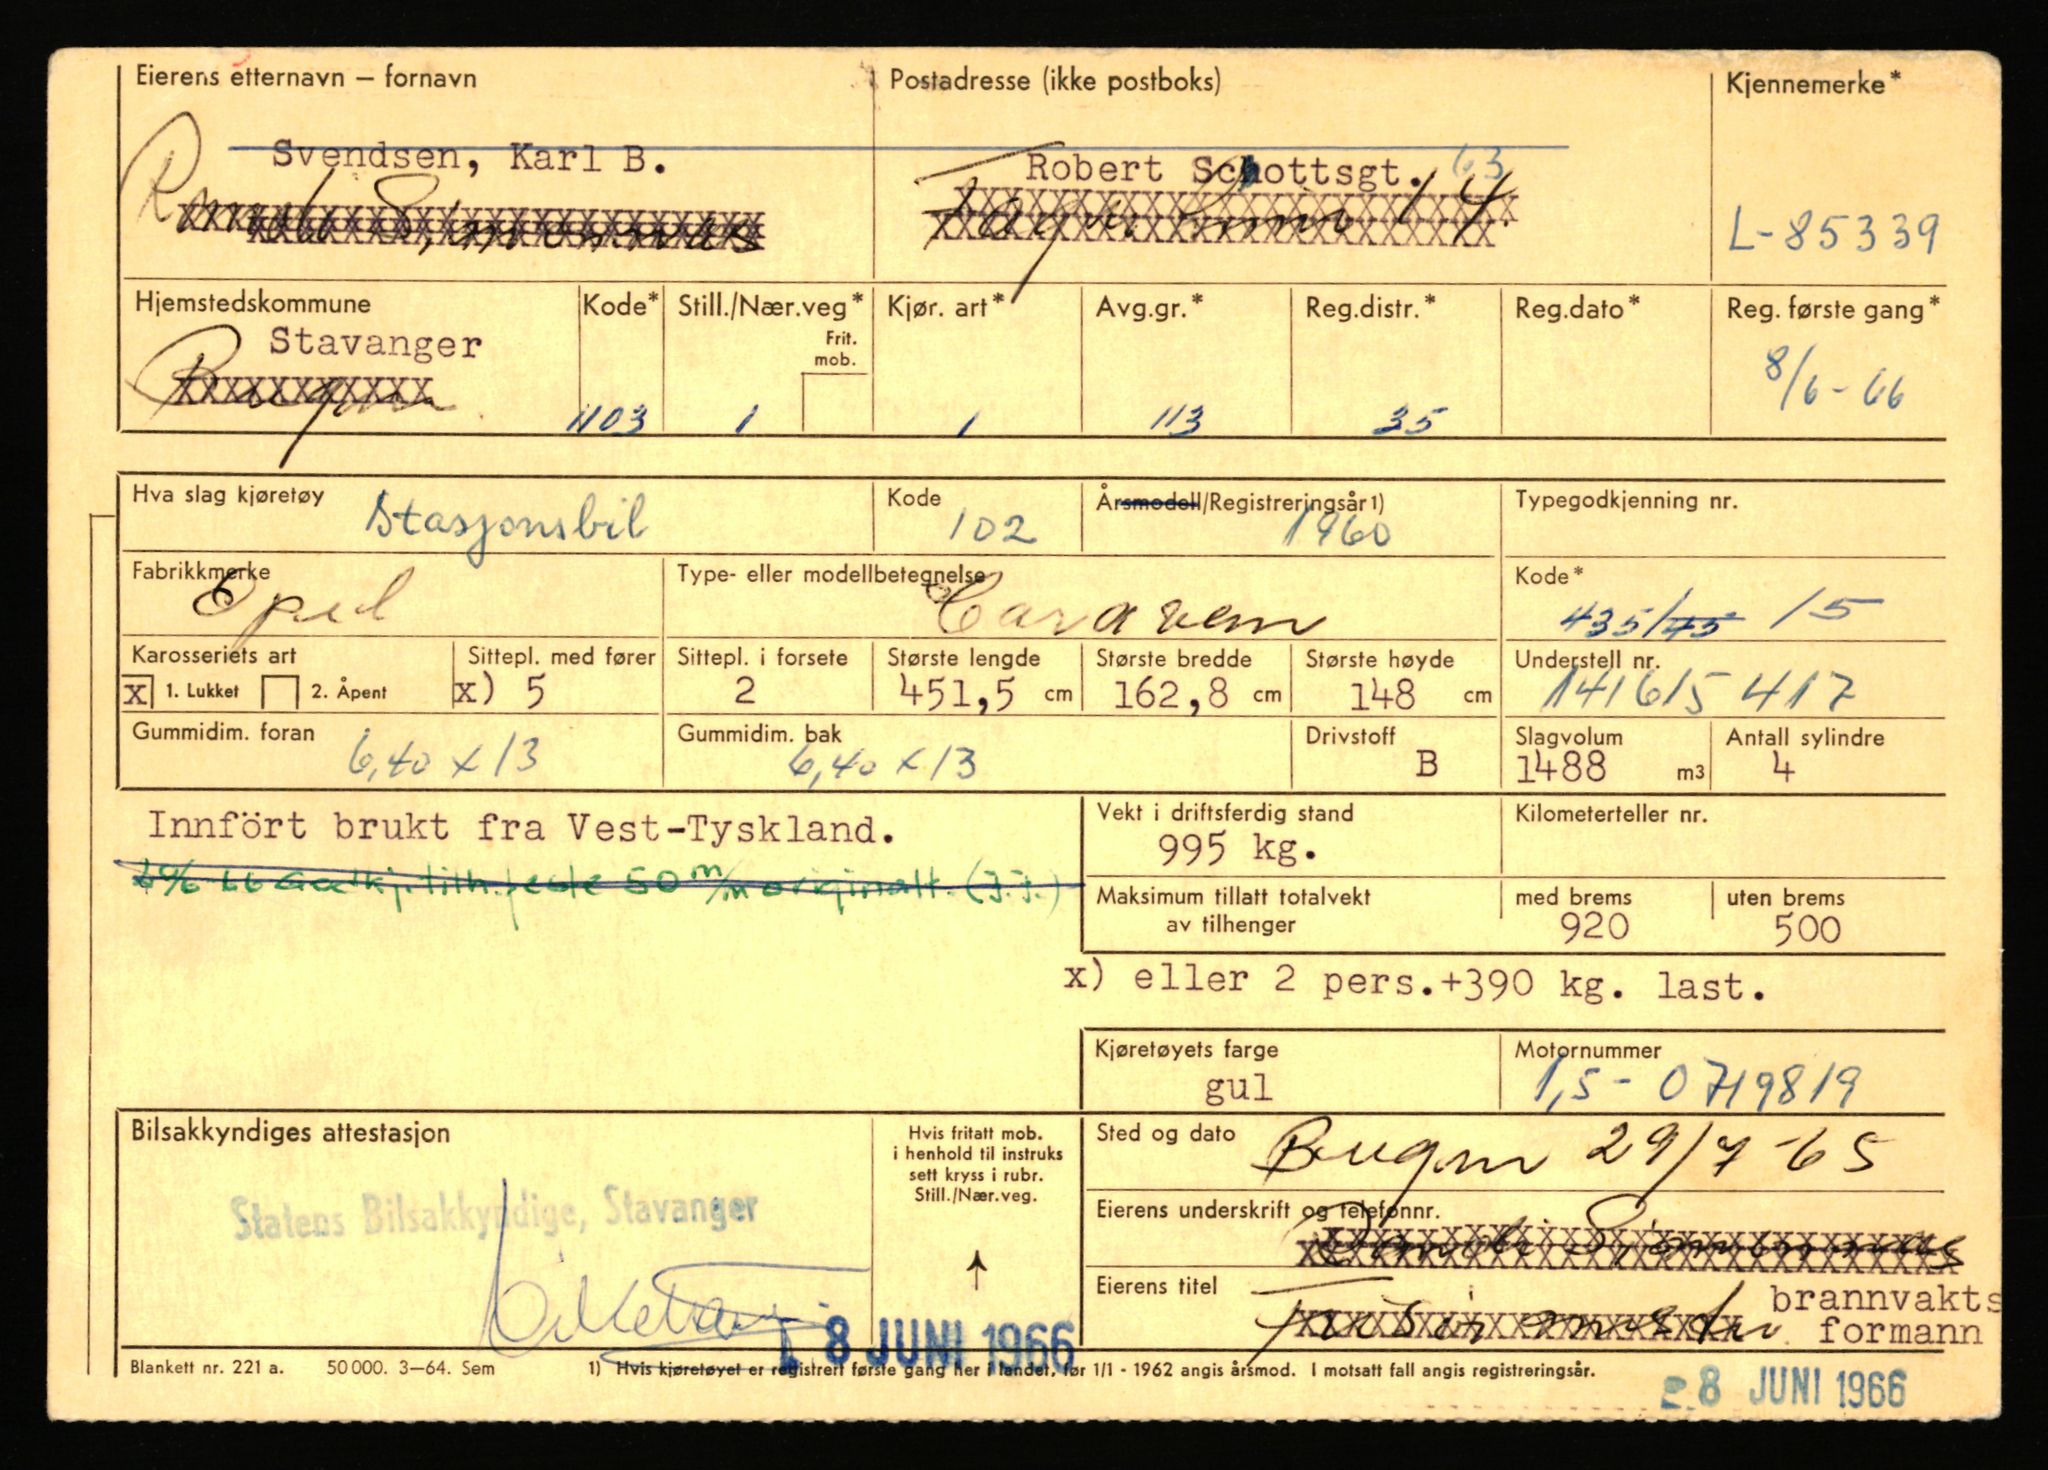 Eierens etternavn – fornavn
Postadresse (ikke postboks)
Kjennemerke*
Svendsen, Karl B.
Robert Schottsgt. 63
14
L-85339
Hjemstedskommune
Kode*
Still./Nær.veg*
Frit. mob.
Kjør. art*
Avg.gr.*
Reg.distr.*
Reg.dato*
Reg. første gang*
Stavanger
Bergen
1103
1
1
113
35
8/6-66
Hva slag kjøretøy
Stasjonsbil
Kode
102
Årsmodell/Registreringsår1)
1960
Typegodkjenning nr.
Fabrikkmerke
Opel
Type- eller modellbetegnelse
Caravan
Kode*
435/45 15
Karosseriets art
X 1. Lukket 2. Åpent
Sittepl. med fører
x) 5
Sittepl. i forsete
2
Største lengde
451,5 cm
Største bredde
162,8 cm
Største høyde
148 cm
Understell nr.
141615417
Gummidim. foran
6,40 x 13
Gummidim. bak
6,40 x 13
Drivstoff
B
Slagvolum
1488 m3
Antall sylindre
4
Innfört brukt fra Vest-Tyskland.
66 Godkj. tilh. feste 50 m/m originalt. (J.J.)
Vekt i driftsferdig stand
995 kg.
Kilometerteller nr.
Maksimum tillatt totalvekt
av tilhenger
med brems
920
uten brems
500
x) eller 2 pers.+390 kg. last.
Kjøretøyets farge
gul
Motornummer
1,5-0719819
Bilsakkyndiges attestasjon
Statens Bilsakkyndige, Stavanger
8 JUNI 1966
Hvis fritatt mob.
i henhold til instruks
sett kryss i rubr.
Still./Nær.veg.
↑
Sted og dato
Bergen 29/7-65
Eierens underskrift og telefonnr.
Eierens titel
brannvakts
formann
Blankett nr. 221 a. 50 000. 3–64. Sem
1) Hvis kjøretøyet er registrert første gang her i landet, før 1/1 - 1962 angis årsmod. I motsatt fall angis registreringsår.
8 JUNI 1966